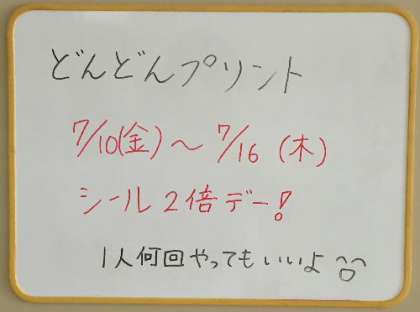 どんどんプリント
7/10(金)～7/16(木)
シール2倍デー!
1人何回やってもいいよ